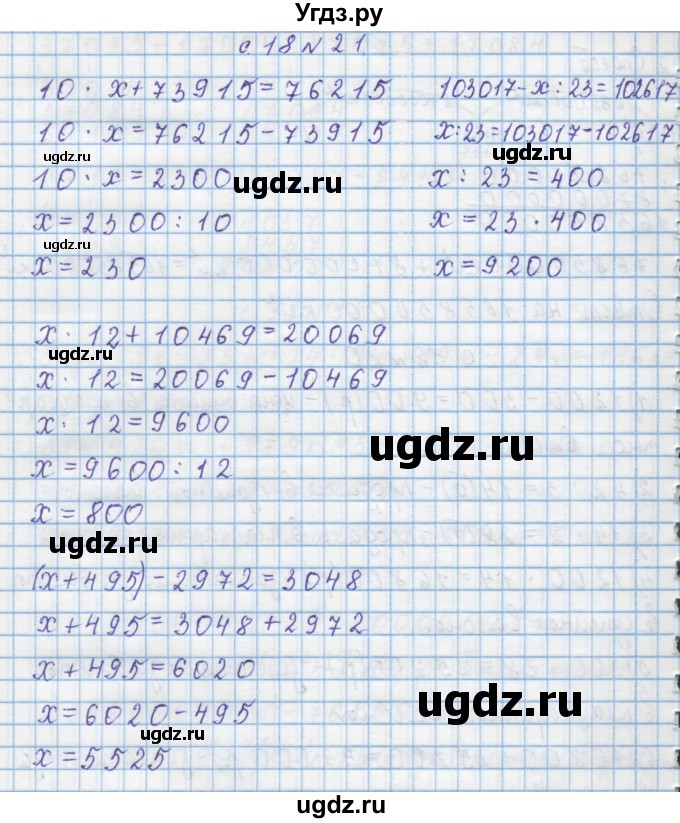 Угдз.ру
с 18 N 21.
10 · x + 73915 = 76215
10 · x = 76215 - 73915
ugdz.ru
10 · x = 2300
ugdz.ru
x = 2300 : 10
ugdz.ru
x = 230
103017 - x : 23 = 102617
x : 23 = 103017 - 102617
ugdz.ru
x : 23 = 400
x = 23 · 400
x = 9200
x · 12 + 10469 = 20069
ugdz.ru
x · 12 = 20069 - 10469
x · 12 = 9600
ugdz.ru
x = 9600 : 12
x = 800
ugdz.ru
(x + 495) - 2972 = 3048
x + 495 = 3048 + 2972
x + 495 = 6020
x = 6020 - 495
ugdz.ru
ugdz.ru
x = 5525
ugdz.ru
ugdz.ru